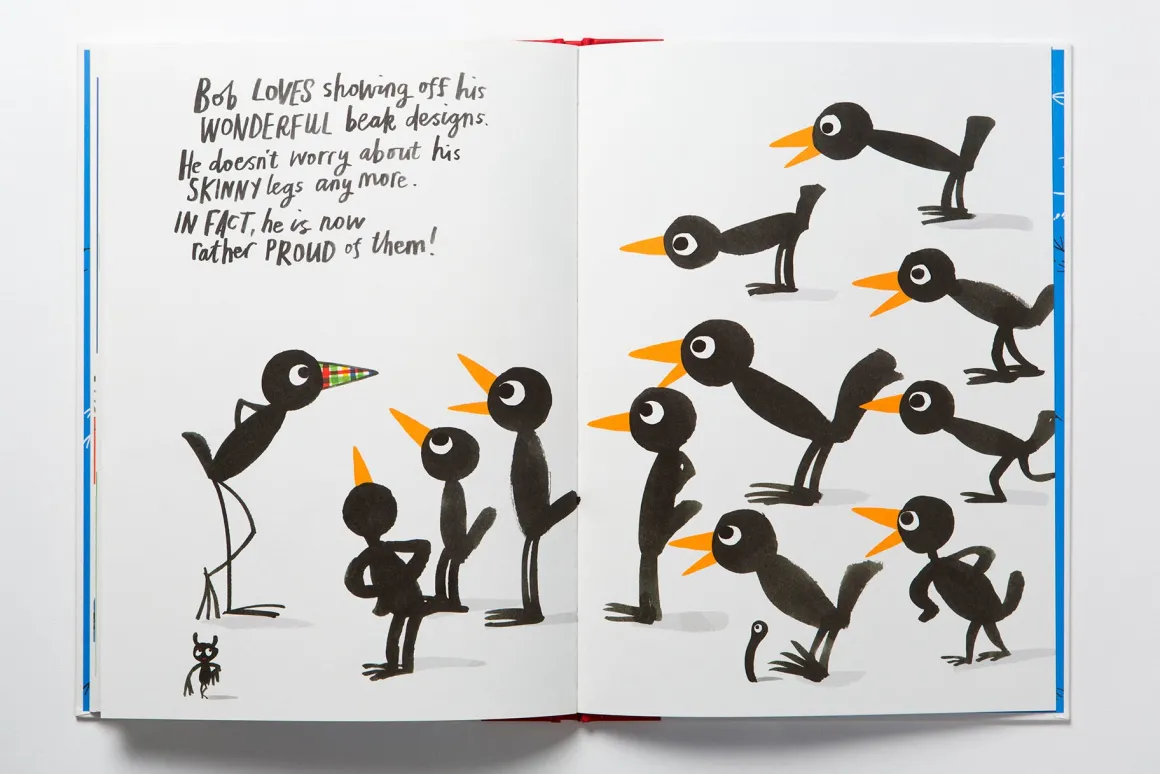 Bob LOVES showing off his
WONDERFUL beak designs.
He doesn't worry about his
SKINNY legs any more.
IN FACT, he is now
rather PROUD of them!